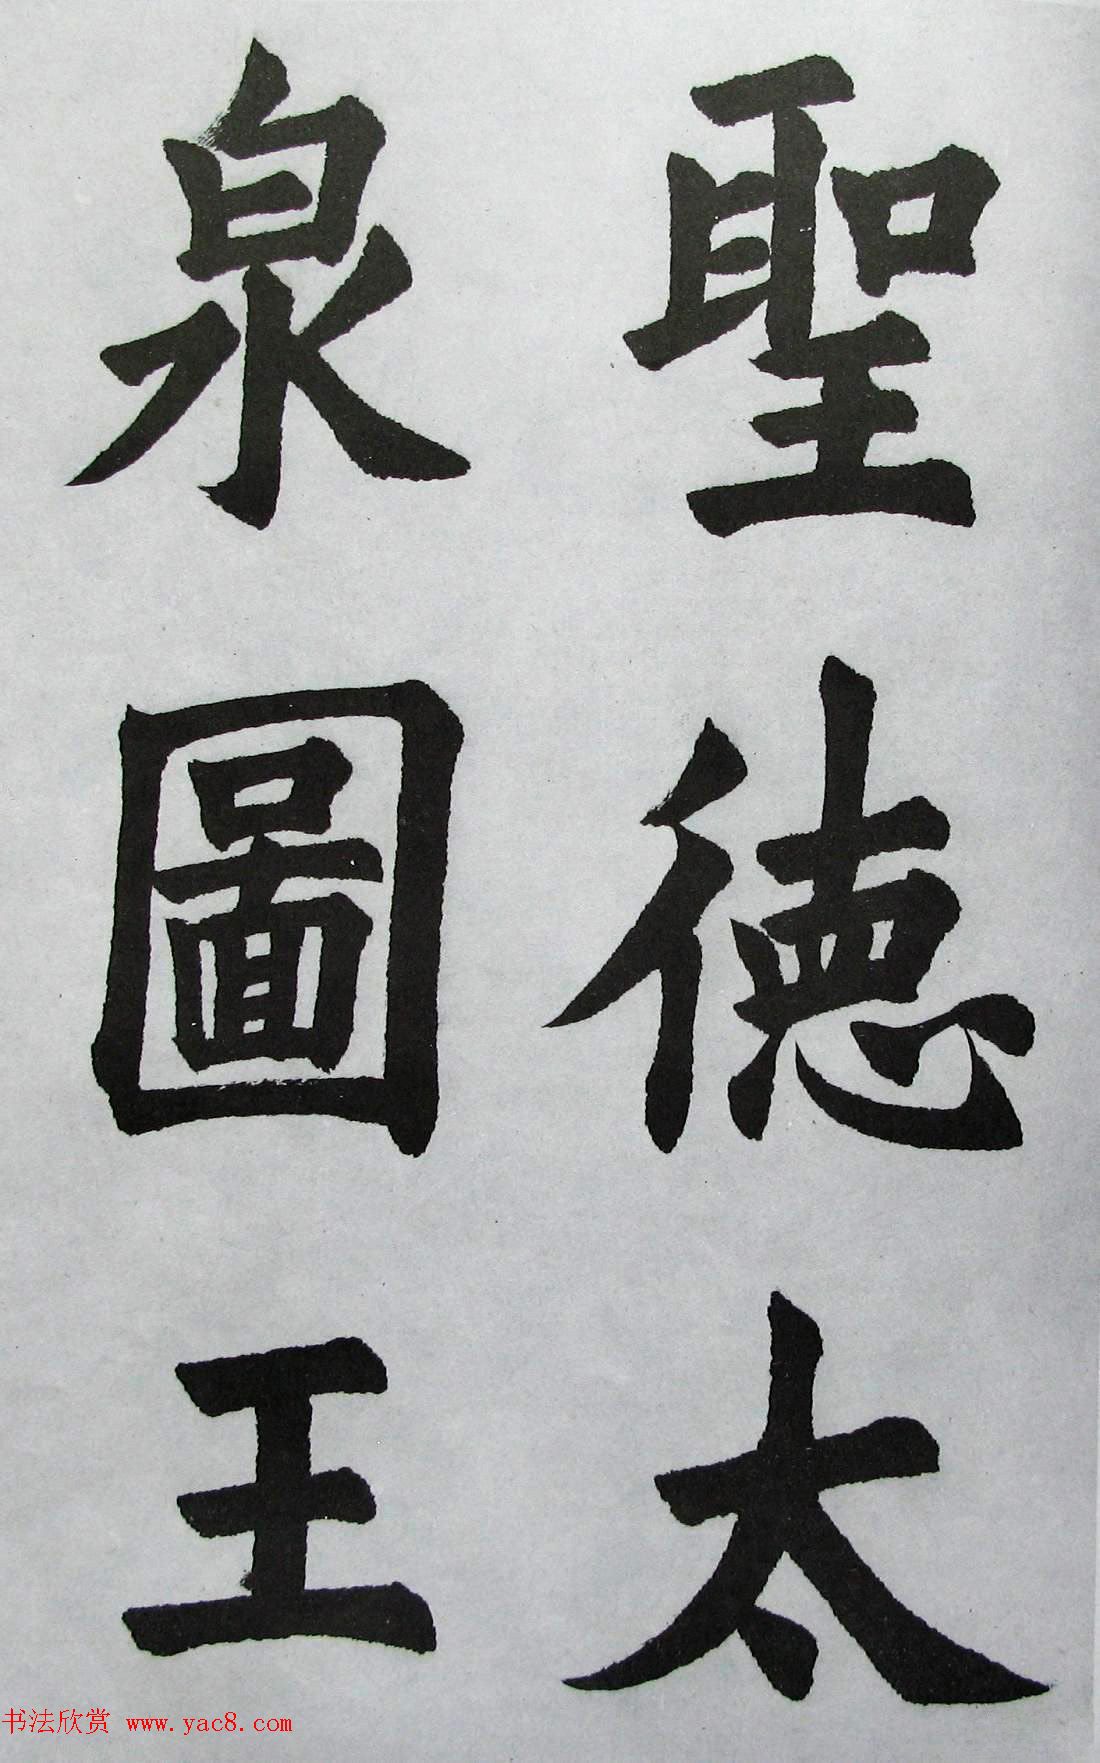 聖德太
泉圖王
书法欣赏 www.yac8.com